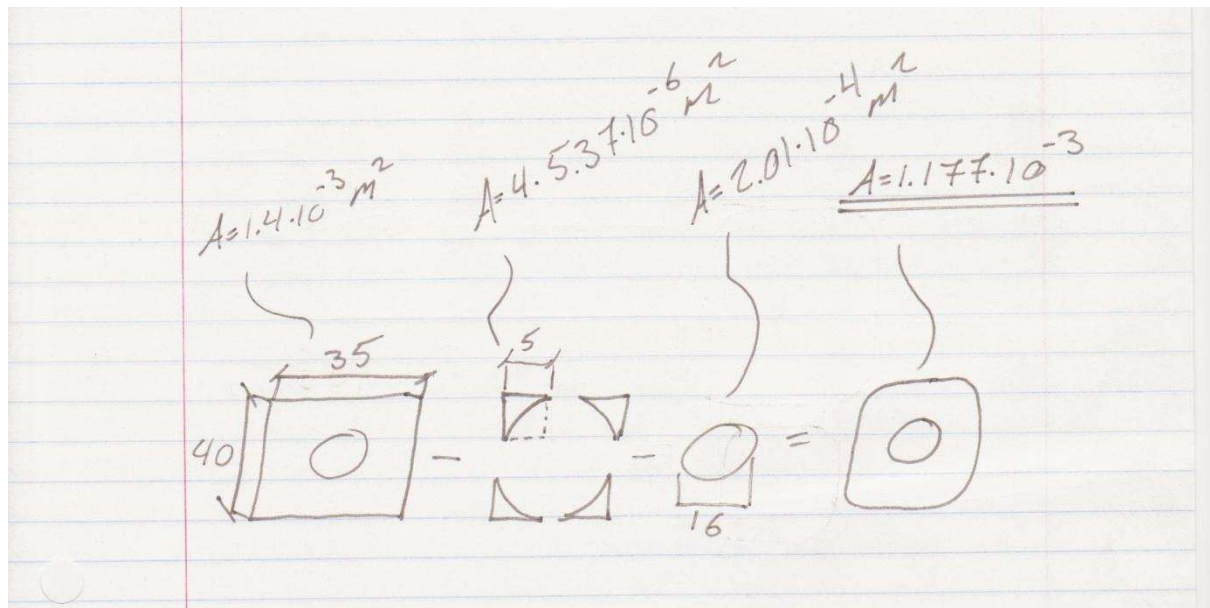 A=1.4·10⁻³ m²
A=4·5.37·10⁻⁶ m²
A=2.01·10⁻⁴ m²
A=1.177·10⁻³
35
5
40
- - =
16